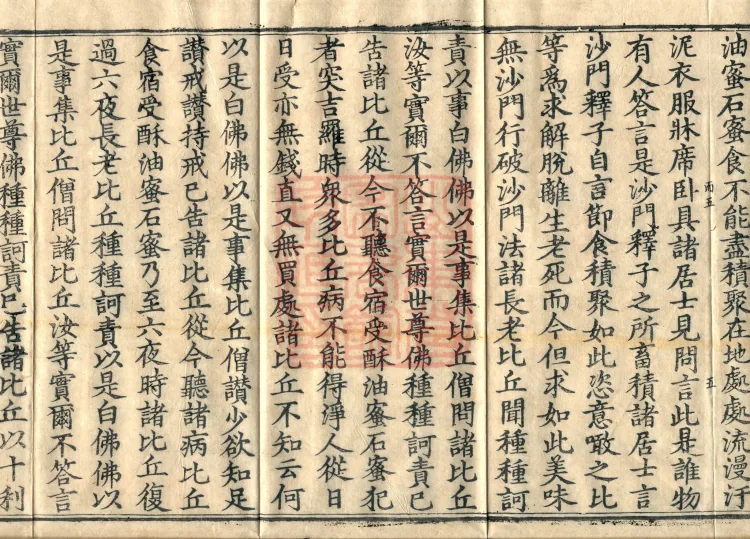 油蜜石蜜食不能盡積聚在地處處流漫汙
五
泥衣服牀席卧具諸居士見問言此是誰物
有人答言是沙門釋子之所畜積諸居士言
沙門釋子自言節食積聚如此恣意噉之比
等爲求解脫離生老死而今但求如此美味
無沙門行破沙門法諸長老比丘聞種種訶
責以事白佛佛以是事集比丘僧問諸比丘
汝等實爾不答言實爾世尊佛種種訶責已
告諸比丘從今不聽食宿受酥油蜜石蜜犯
者突吉羅時衆多比丘病不能得淨人從日
日受亦無錢直又無買處諸比丘不知云何
以是白佛佛以是事集比丘僧讚少欲知足
讚戒讚持戒已告諸比丘從今聽諸病比丘
食宿受酥油蜜石蜜乃至六夜時諸比丘復
過六夜長老比丘種種訶責以是白佛佛以
是事集比丘僧問諸比丘汝等實爾不答言
實爾世尊佛種種訶責已告諸比丘以十利